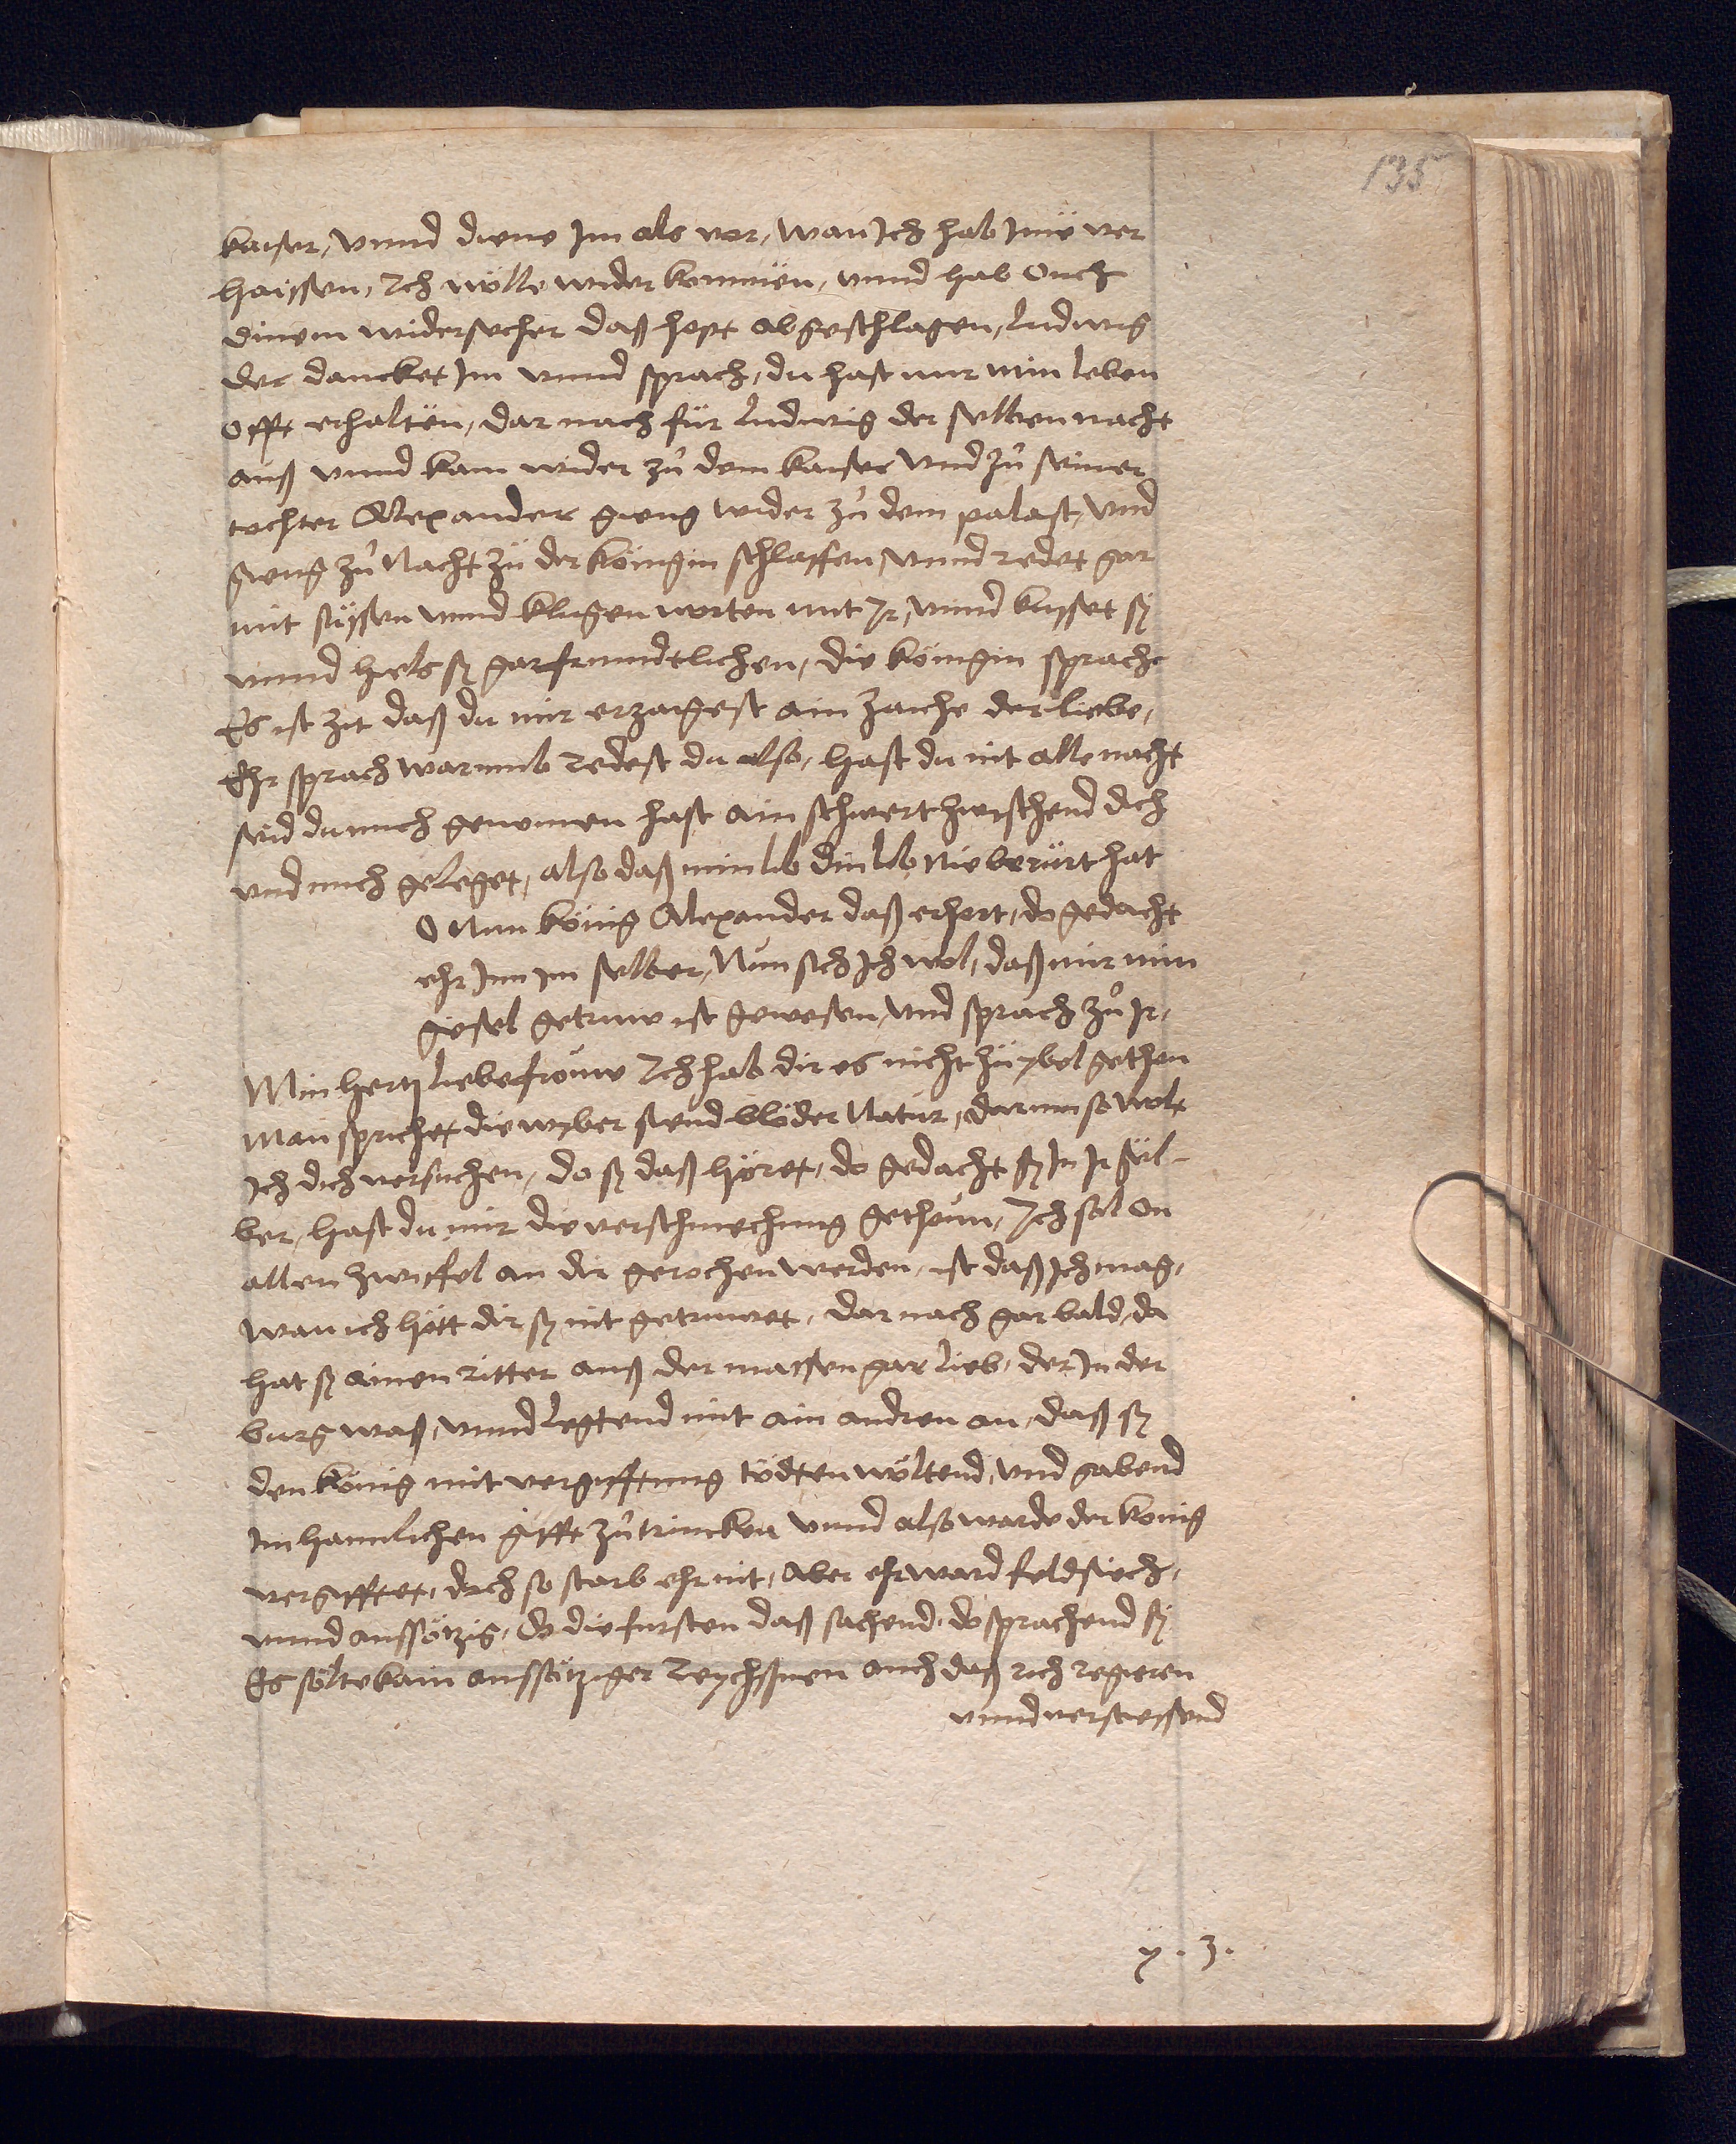 135
kaiser, vnnd diene Im als vor, wan Ich hab Ime ver
haissen, Ich wölle wider kommen, vnnd hab ouch
dinem widersecher daß hopt abgeschlagen, Ludwig
der dancket Im vnnd sprach, du hast mir min leben
offt erhalten, dar nach für Ludwig der selben nacht
auß vnnd kam wider zů dem kaiser vnd zů seiner
tochter Alexander gieng wider zů dem palast, vnd
gieng zů Nacht zů der königin schlaffen, vnnd redet gar
mit süssen vnnd klugen worten mit Ir, vnnd kusset sy
vnnd hels sy gar frundtlichen, die königin sprach
Es ist zit daß du mir erzaigest ain zaiche der liebe,
Ehr sprach warumb redest du also, hast du nit alle nacht
seid du mich genomen hast ain schwert zwischend dich
vnd mich geleget, also daß min lib din lib nie berürt hat
O Nun könig Alexander daß erhort, do gedacht
ehr Inn im selber, Nun sich Ich wol, daß mir min
gesel getruw ist gewesen, vnd sprach zů Ir,
Min hertz liebe frouwe Ich hab dir es nicht zů ybel gethon
man sprichet die wyber siend blöder Natur, darum so wolt
Ich dich versuchen, do sy daß höret, do gedacht sy In Ir sel-
ber, hast du mir die verschmechung gethoun, Ich sol on
allen zwiffel an dir gerochen werden, ist daß Ich mag,
wan ich hett dir sy nit getruwet, dar nach gar bald, da
hat sy ainen ritter auß der massen gar lieb, der In der
burg waß, vnnd legtend mit ain andren an, daß sy
den könig mit vergifftung tödten wöltend, vnd gabend
Im haimlichen gifft zů trincken vnnd also warde der konig
vergifftet, doch so starb ehr nit, Aber ehr ward feldsiech,
vnnd aussötzig, do die fursten daß sachend, do sprachend sy
Es sölte kain aussötziger auch daß rich regieren
vnnd verstiessend
y. 3.